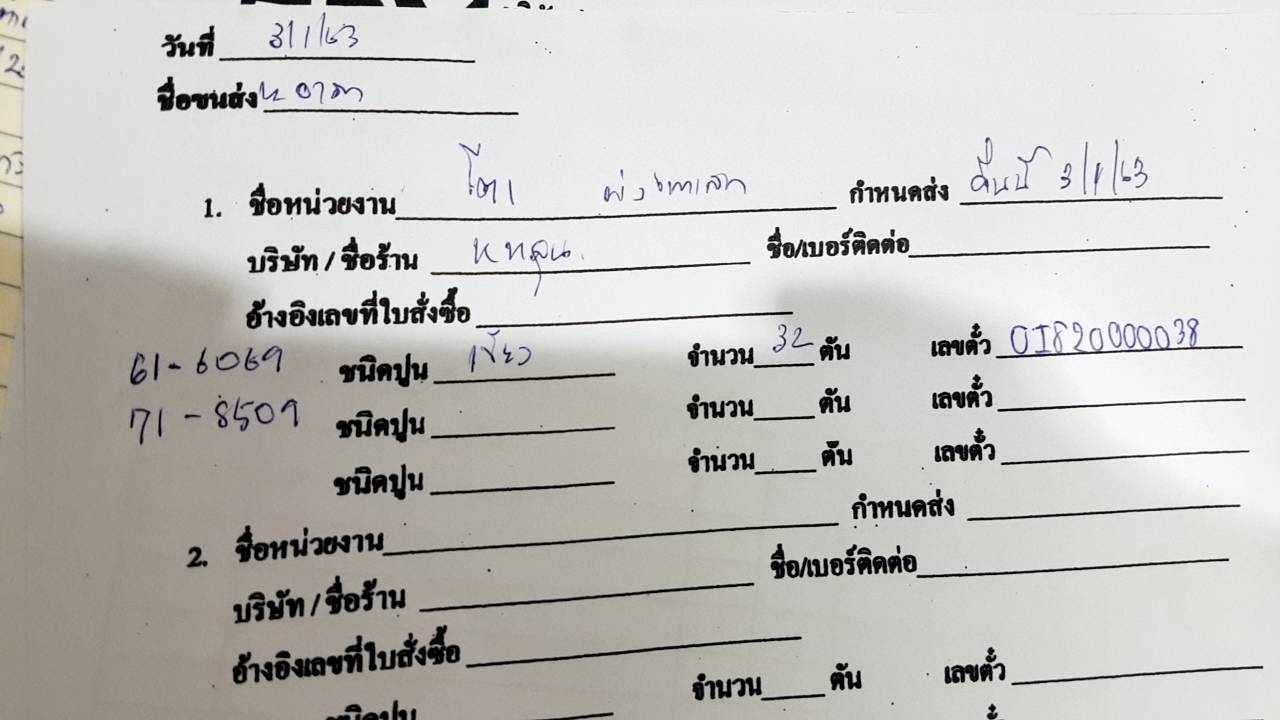 วันที่ 3/1/63
ชื่อขนส่ง
1. ชื่อหน่วยงาน กำหนดส่ง คืนนี้ 3/1/63
บริษัท / ชื่อร้าน ชื่อ/เบอร์ติดต่อ
อ้างอิงเลขที่ใบสั่งซื้อ
61-6069 ชนิดปูน เขียว จำนวน 32 ตัน เลขตั๋ว OI820000038
71-8509 ชนิดปูน จำนวน ตัน เลขตั๋ว
ชนิดปูน จำนวน ตัน เลขตั๋ว
2. ชื่อหน่วยงาน กำหนดส่ง
บริษัท / ชื่อร้าน ชื่อ/เบอร์ติดต่อ
อ้างอิงเลขที่ใบสั่งซื้อ
ชนิดปูน จำนวน ตัน เลขตั๋ว